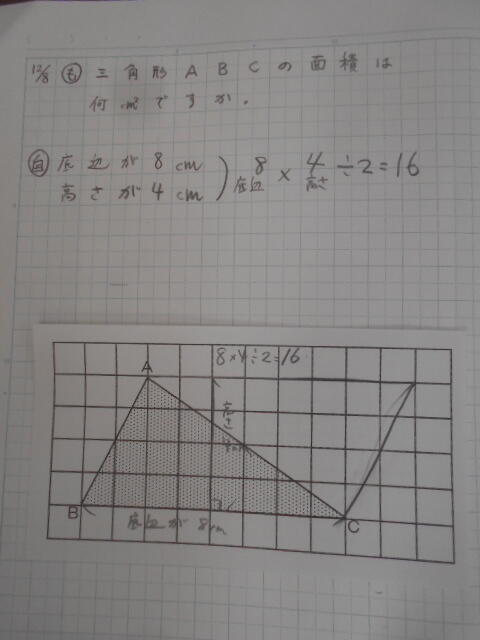 12/8 も 三角形ABCの面積は
何cm²ですか。
自 底辺が8cm
高さが4cm
8×4÷2=16
底辺 高さ
8×4÷2=16
A
高さ
4cm
B
底辺が8cm
C